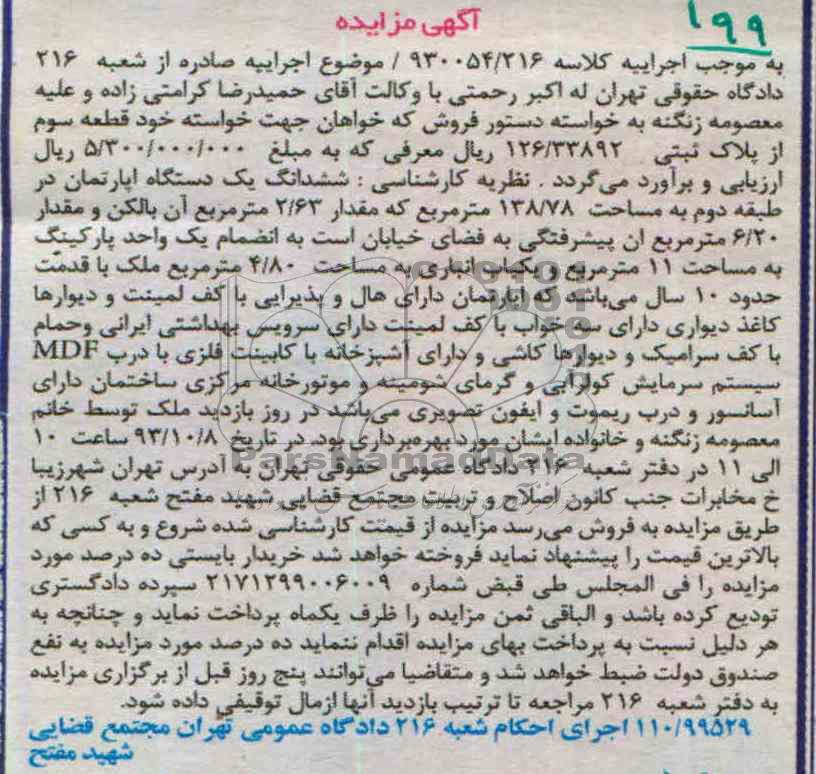 ۱۹۹
آگهی مزایده
به موجب اجراییه کلاسه ۹۳۰۰۵۴/۲۱۶ / موضوع اجراییه صادره از شعبه ۲۱۶
دادگاه حقوقی تهران له اکبر رحمتی با وکالت آقای حمیدرضا کرامتی زاده و علیه
معصومه زنگنه به خواسته دستور فروش که خواهان جهت خواسته خود قطعه سوم
از پلاک ثبتی ۱۲۶/۳۳۸۹۲ ریال معرفی که به مبلغ ۵/۳۰۰/۰۰۰/۰۰۰ ریال
ارزیابی و برآورد می‌گردد . نظریه کارشناسی : ششدانگ یک دستگاه اپارتمان در
طبقه دوم به مساحت ۱۳۸/۷۸ مترمربع که مقدار ۲/۶۳ مترمربع آن بالکن و مقدار
۶/۲۰ مترمربع ان پیشرفتگی به فضای خیابان است به انضمام یک واحد پارکینگ
به مساحت ۱۱ مترمربع و یکباب انباری به مساحت ۴/۸۰ مترمربع ملک با قدمت
حدود ۱۰ سال می‌باشد که اپارتمان دارای هال و پذیرایی با کف لمینت و دیوارها
کاغذ دیواری دارای سه خواب با کف لمینت دارای سرویس بهداشتی ایرانی وحمام
با کف سرامیک و دیوارها کاشی و دارای آشپزخانه با کابینت فلزی با درب MDF
سیستم سرمایش کولرآبی و گرمای شومینه و موتورخانه مرکزی ساختمان دارای
آسانسور و درب ریموت و ایفون تصویری می‌باشد در روز بازدید ملک توسط خانم
معصومه زنگنه و خانواده ایشان مورد بهره‌برداری بود. در تاریخ ۹۳/۱۰/۸ ساعت ۱۰
الی ۱۱ در دفتر شعبه ۲۱۶ دادگاه عمومی حقوقی تهران به ادرس تهران شهرزیبا
خ مخابرات جنب کانون اصلاح و تربیت مجتمع قضایی شهید مفتح شعبه ۲۱۶ از
طریق مزایده به فروش می‌رسد مزایده از قیمت کارشناسی شده شروع و به کسی که
بالاترین قیمت را پیشنهاد نماید فروخته خواهد شد خریدار بایستی ده درصد مورد
مزایده را فی المجلس طی قبض شماره ۲۱۷۱۲۹۹۰۰۶۰۰۹ سپرده دادگستری
تودیع کرده باشد و الباقی ثمن مزایده را ظرف یکماه پرداخت نماید و چنانچه به
هر دلیل نسبت به پرداخت بهای مزایده اقدام ننماید ده درصد مورد مزایده به نفع
صندوق دولت ضبط خواهد شد و متقاضیا می‌توانند پنج روز قبل از برگزاری مزایده
به دفتر شعبه ۲۱۶ مراجعه تا ترتیب بازدید آنها ازمال توقیفی داده شود.
۱۱۰/۹۹۵۲۹ اجرای احکام شعبه ۲۱۶ دادگاه عمومی تهران مجتمع قضایی
شهید مفتح
ParsNamadData